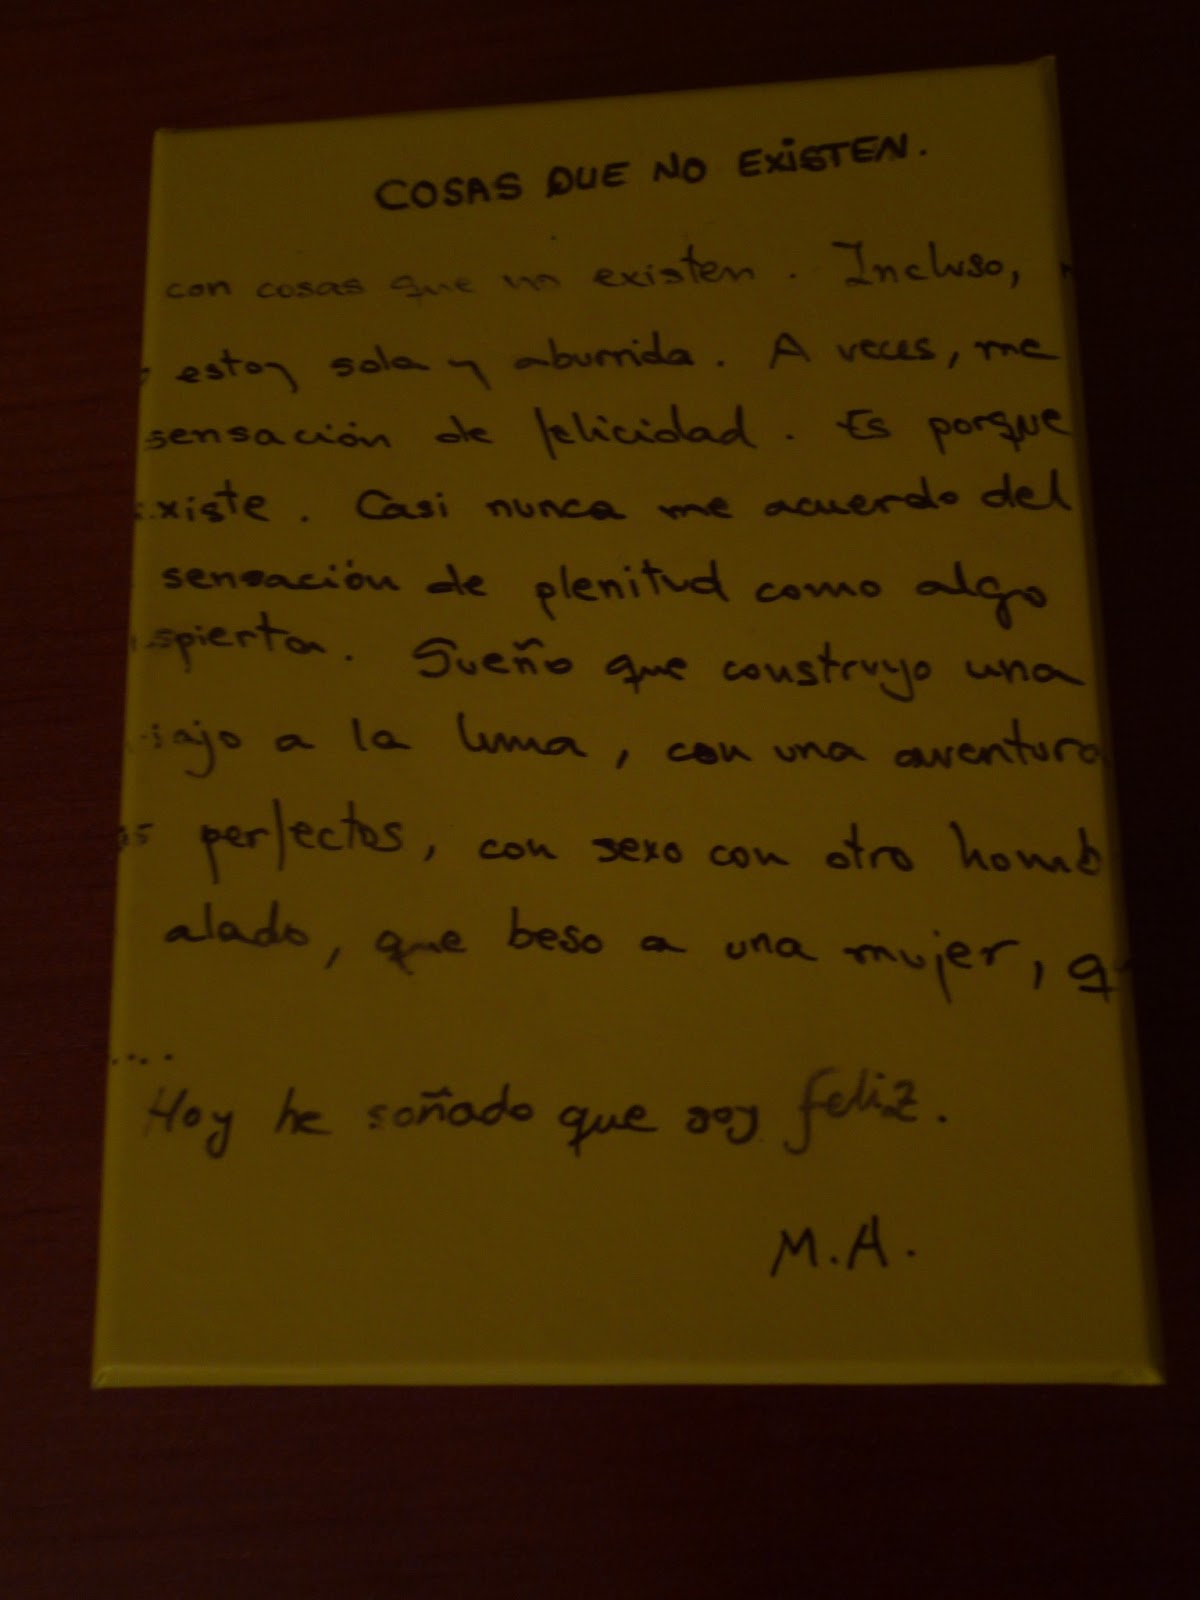 COSAS QUE NO EXISTEN.
con cosas que no existen. Incluso,
estoy sola y aburrida. A veces, me
sensación de felicidad. Es porque
xiste. Casi nunca me acuerdo del
sensación de plenitud como algo
spierta. Sueño que construyo una
iajo a la luna, con una aventura
os perfectos, con sexo con otro homb
alado, que beso a una mujer, q
....
Hoy he soñado que soy feliz.
M.A.